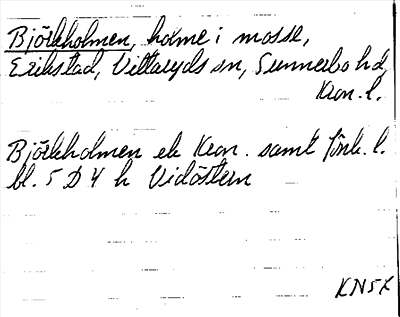 Björkholmen, holme i mosse,
Erikstad, Vittaryds sn, Sunnerbo hd,
Kron. l.
Björkholmen ek Kron. samt Jönk. l.
bl. 5 D 4 h Vidöstern
KN5X